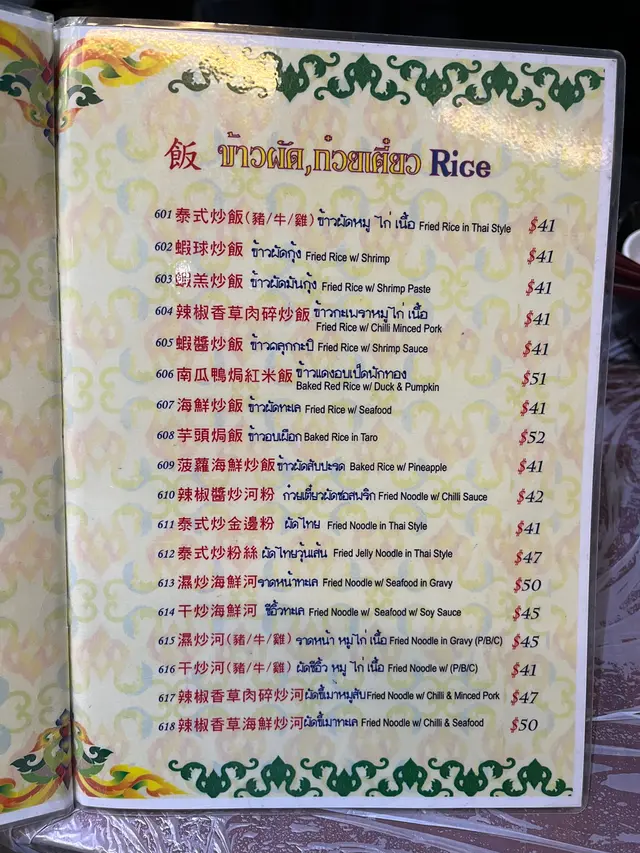 飯 ข้าวผัด,ก๋วยเตี๋ยว Rice
601 泰式炒飯(豬/牛/雞) ข้าวผัดหมู ไก่ เนื้อ Fried Rice in Thai Style $41
602 蝦球炒飯 ข้าวผัดกุ้ง Fried Rice w/ Shrimp $41
603 蝦羔炒飯 ข้าวผัดมันกุ้ง Fried Rice w/ Shrimp Paste $41
604 辣椒香草肉碎炒飯 ข้าวกะเพราหมู ไก่ เนื้อ $41
Fried Rice w/ Chilli Minced Pork
605 蝦醬炒飯 ข้าวคลุกกะปิ Fried Rice w/ Shrimp Sauce $41
606 南瓜鴨焗紅米飯 ข้าวแดงอบเป็ดฟักทอง $51
Baked Red Rice w/ Duck & Pumpkin
607 海鮮炒飯 ข้าวผัดทะเล Fried Rice w/ Seafood $41
608 芋頭焗飯 ข้าวอบเผือก Baked Rice in Taro $52
609 菠蘿海鮮炒飯 ข้าวผัดสับปะรด Baked Rice w/ Pineapple $41
610 辣椒醬炒河粉 ก๋วยเตี๋ยวผัดซอสพริก Fried Noodle w/ Chilli Sauce $42
611 泰式炒金邊粉 ผัดไทย Fried Noodle in Thai Style $41
612 泰式炒粉絲 ผัดไทยวุ้นเส้น Fried Jelly Noodle in Thai Style $47
613 濕炒海鮮河 ราดหน้าทะเล Fried Noodle w/ Seafood in Gravy $50
614 干炒海鮮河 ซีอิ้วทะเล Fried Noodle w/ Seafood w/ Soy Sauce $45
615 濕炒河(豬/牛/雞) ราดหน้า หมู ไก่ เนื้อ Fried Noodle in Gravy (P/B/C) $45
616 干炒河(豬/牛/雞) ผัดซีอิ้ว หมู ไก่ เนื้อ Fried Noodle w/ (P/B/C) $41
617 辣椒香草肉碎炒河 ผัดขี้เมาหมูสับ Fried Noodle w/ Chilli & Minced Pork $47
618 辣椒香草海鮮炒河 ผัดขี้เมาทะเล Fried Noodle w/ Chilli & Seafood $50